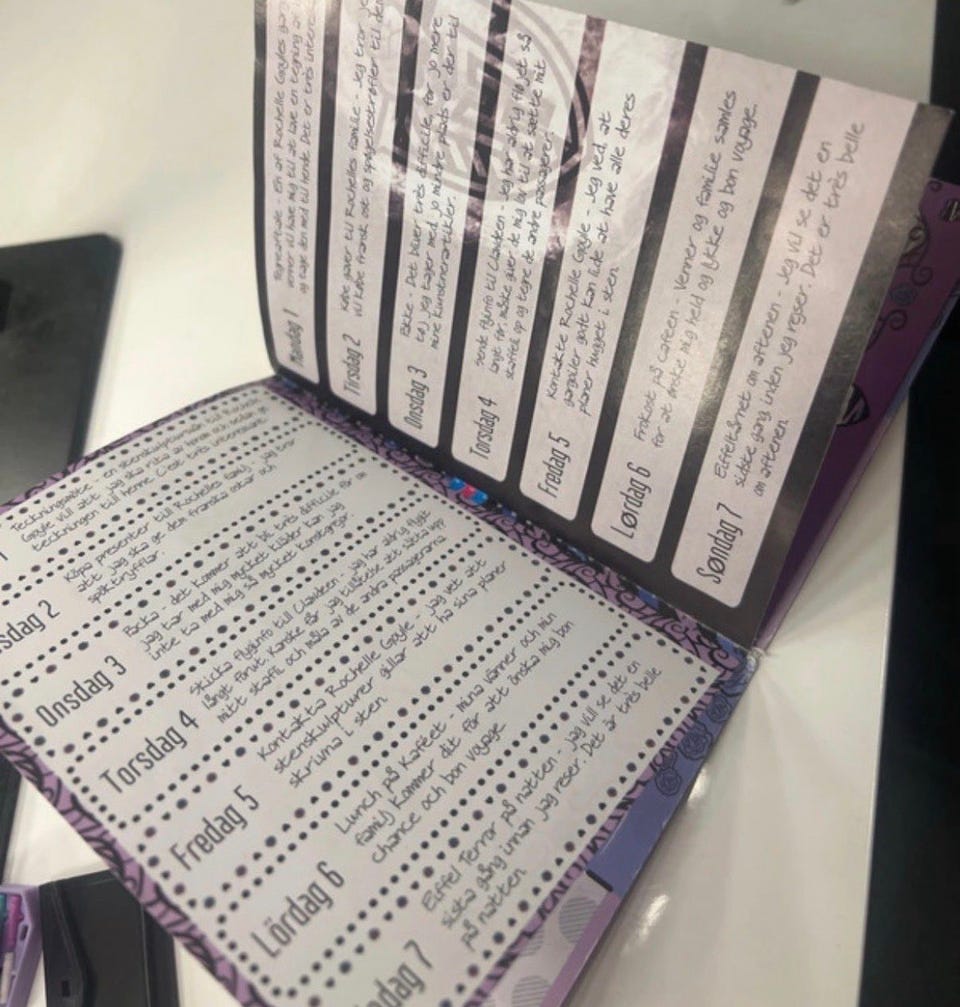 Teckningsmöte - en stenskulpturman till Rochelle
Goyle vill att jag ska rita av honom och sedan ge
teckningen till henne. C'est très intéressant.
sdag 2
Köpa presenter till Rochelles familj - jag tror
att jag ska ge dem franska ostar och
spöktryfflar.
Onsdag 3
Packa - det kommer att bli très difficile för om
jag tar med mig mycket kläder kan jag
inte ta med mig så mycket konstgrejor.
Torsdag 4
Skicka flyginfo till Clawdeen - jag har aldrig flygt
långt förut, Kanske får jag tillåtelse att sätta upp
mitt staffli och måla av de andra passagerarna
Fredag 5
Kontakta Rochelle Goyle - jag vet att
stenskulpturer gillar att ha sina planer
skrivna i sten
Lördag 6
Lunch på Kaféet - mina vänner och min
familj kommer dit för att önska mig bon
chance och bon voyage
dag 7
Eiffel Terror på natten - jag vill se det en
sista gång innan jag reser. Det är très belle
på natten
Mandag 1
Tegneaftale - en af Rochelle Goyles
venner vil have mig til at lave en tegning af
og tage den med til hende. Det er très
Tirsdag 2
Købe gaver til Rochelles familie - Jeg tror
vi købe fransk ost og spøgelsestrøfler til dem
Onsdag 3
Pakke - Det bliver très difficile, for jo mere
tøj jeg tager med, jo mindre plads er der til
mine kunstnerartikler.
Torsdag 4
Sende flyinfo til Clawdeen - Jeg har aldrig fløjet så
langt før. Måske giver de mig lov til at sætte mit
staffeli op og tegne de andre passagerer.
Fredag 5
Kontakte Rochelle Goyle - Jeg ved, at
gargoiler godt kan lide at have alle deres
planer hugget i sten.
Lørdag 6
Frokost på cafeen - Venner og familie samles
for at ønske mig held og lykke og bon voyage.
Søndag 7
Eiffeltårnet om aftenen - Jeg vil se det en
sidste gang, inden jeg rejser. Det er très belle
om aftenen.